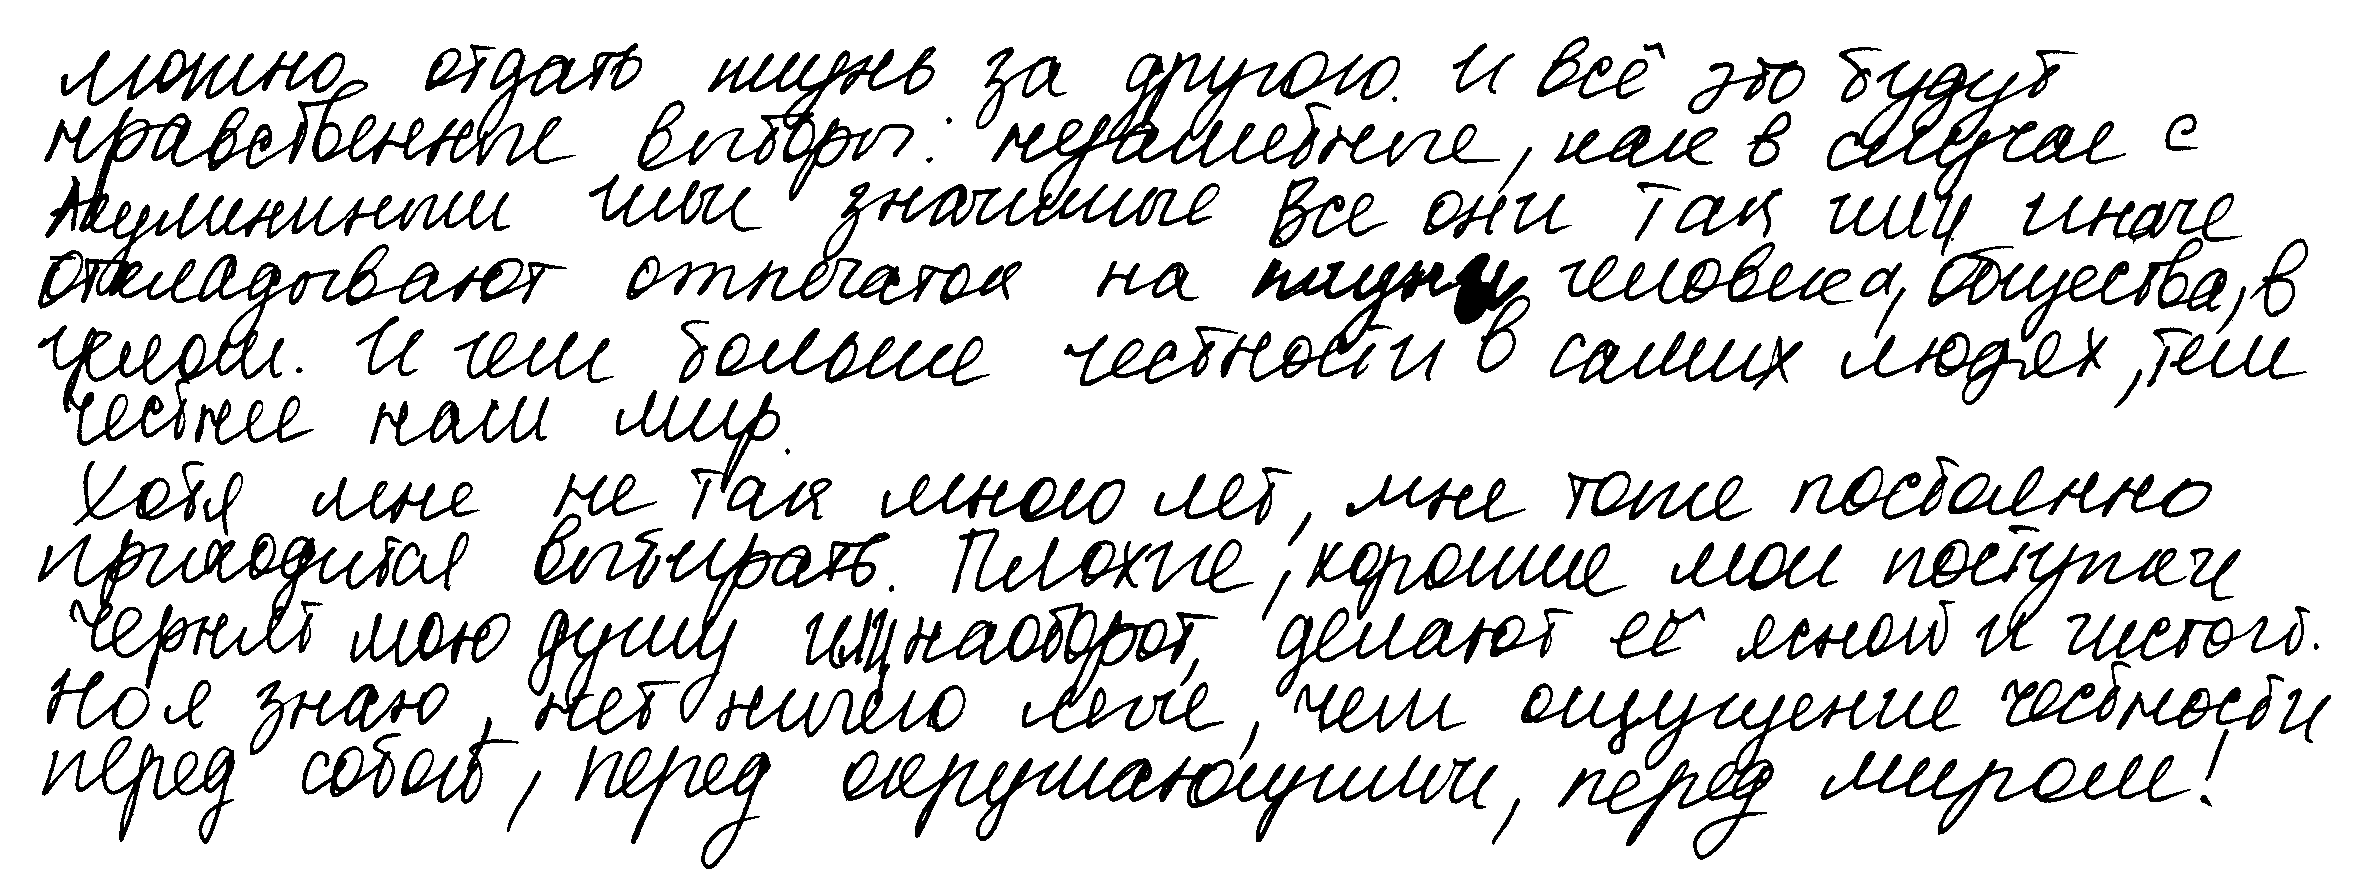 можно отдать жизнь за другого. И всё это будут
нравственные выборы: незаметные, как в случае с
или значимые Все они так или иначе
откладывают отпечаток на жизни человека, общества, в
целом. И чем больше честности в самих людях, тем
честнее наш мир.
Хотя мне не так много лет, мне тоже постоянно
приходится выбирать. Плохие, хорошие мои поступки
чернят мою душу или, наоборот, делают её ясной и чистой.
Но я знаю, нет ничего легче, чем ощущение честности
перед собой, перед окружающими, перед миром!